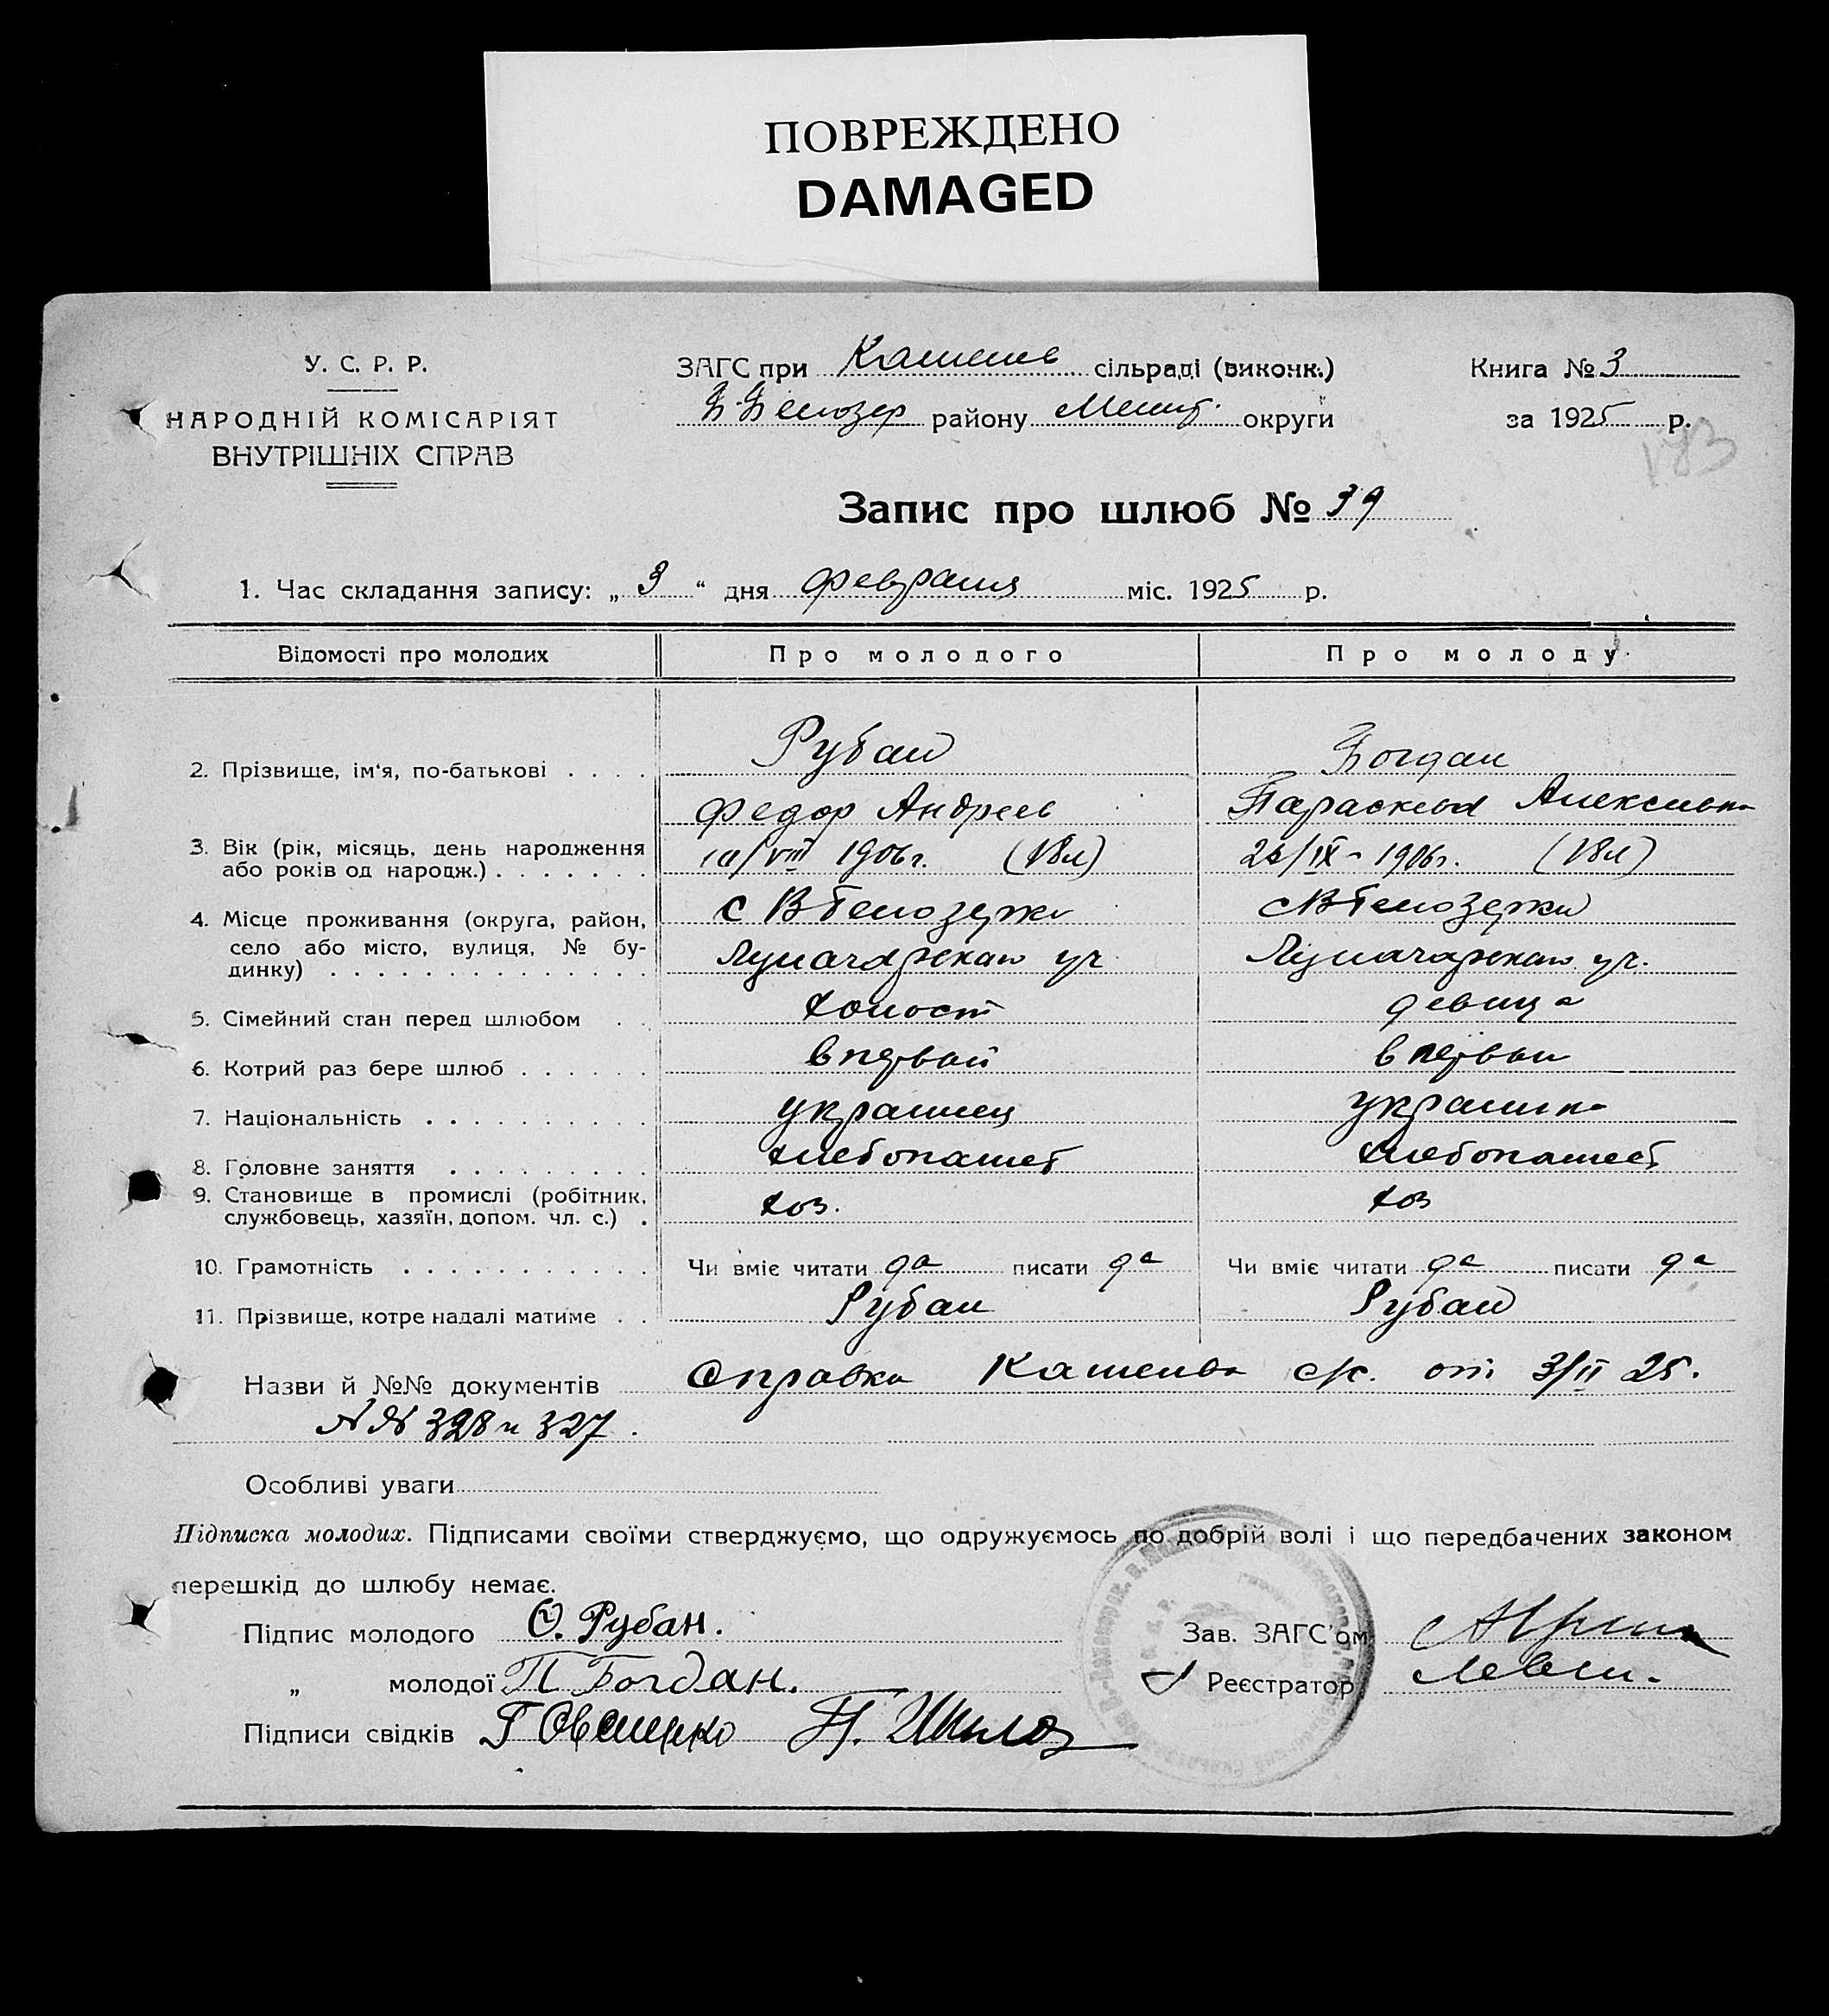 ПОВРЕЖДЕНО
DAMAGED
У. С. Р. Р.
НАРОДНІЙ КОМІСАРІЯТ
ВНУТРІШНІХ СПРАВ
ЗАГС при Каменс сільраді (виконк.)
В-Белозер району Мелит. округи
Книга № 3
за 1925 р.
183
Запис про шлюб № 39
1. Час складання запису: „ 3 “ дня февраля міс. 1925 р.
Відомості про молодих Про молодого Про молоду
2. Прізвище, ім‘я, по-батькові . . . . Рубан Богдан
Федор Андреев Параскева Алексеевна
3. Вік (рік, місяць, день народження
або років од народж.) . . . . . . . /VIII 1906 г. (18 л) /IX - 1906 г. (18 л)
4. Місце проживання (округа, район, с В Белозерки с В Белозерки
село або місто, вулиця, № бу-
динку) . . . . . . . . . . . . . . Луначарская уч. Луначарская уч.
5. Сімейний стан перед шлюбом . . холост девица
6. Котрий раз бере шлюб . . . . . . в первый в первый
7. Національність . . . . . . . . . . украинец украинка
8. Головне заняття . . . . . . . . . хлебопашест хлебопашест
9. Становище в промислі (робітник,
службовець, хазяїн, допом. чл. с.) . хоз. хоз
10. Грамотність . . . . . . . . . . . Чи вміє читати да писати да Чи вміє читати да писати да
11. Прізвище, котре надалі матиме . . Рубан Рубан
Назви й №№ документів Справка с/с. от 3/II 25.
№№ 328 и 327.
Особливі уваги
Підписка молодих. Підписами своїми стверджуємо, що одружуємось по добрій волі і що передбачених законом
перешкід до шлюбу немає.
Підпис молодого Ѳ. Рубан.
Зав. ЗАГС'ом
„ молодої П Богдан.
Реєстратор
Підписи свідків Г П.